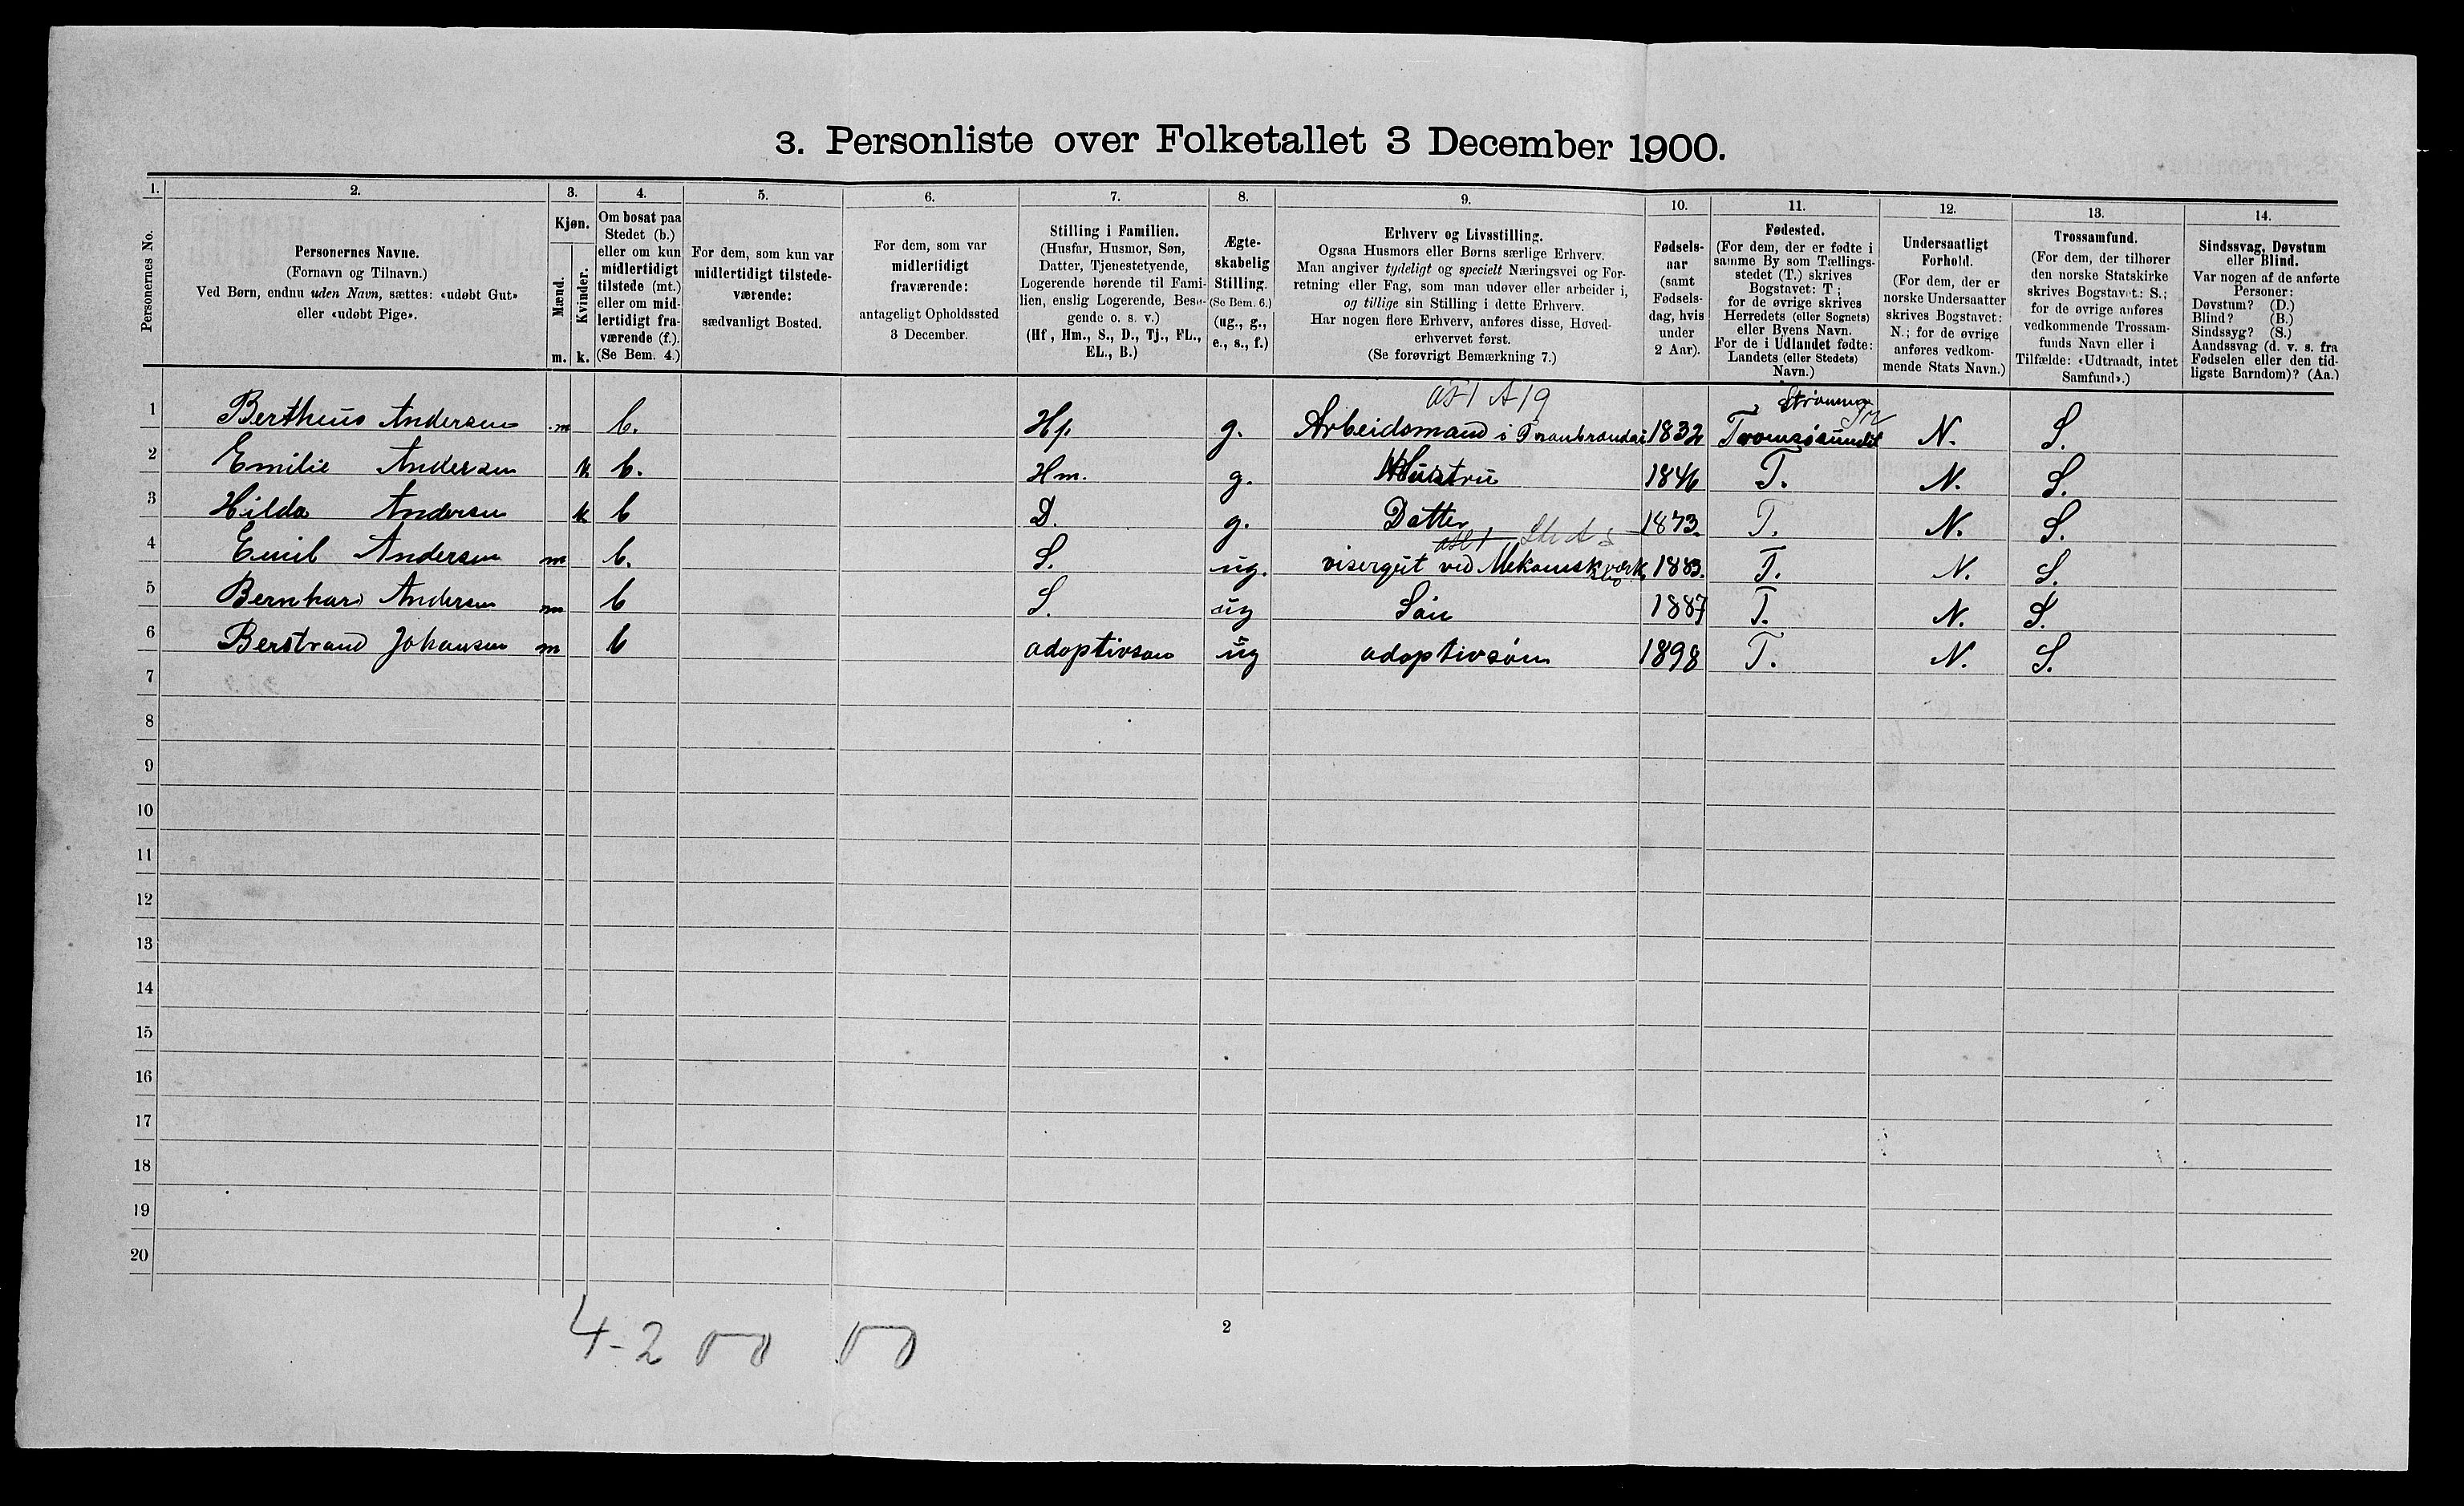 3. Personliste over Folketallet 3 December 1900.
1. 2. 3. 4. 5. 6. 7. 8. 9. 10. 11. 12. 13. 14.
Personernes No.
Personernes Navne.
(Fornavn og Tilnavn.)
Ved Børn, endnu uden Navn, sættes: «udøbt Gut»
eller «udøbt Pige».
Kjøn.
Mænd.
Kvinder.
m. k.
Om bosat paa
Stedet (b.)
eller om kun
midlertidigt
tilstede (mt.)
eller om mid-
lertidigt fra-
værende (f.).
(Se Bem. 4.)
For dem, som kun var
midlertidigt tilstede-
værende:
sædvanligt Bosted.
For dem, som var
midlertidigt
fraværende:
antageligt Opholdssted
3 December.
Stilling i Familien.
(Husfar, Husmor, Søn,
Datter, Tjenestetyende,
Logerende hørende til Fami-
lien, enslig Logerende, Besø-
gende o. s. v.)
(Hf, Hm., S., D., Tj., FL.,
EL., B.)
Ægte-
skabelig
Stilling.
(Se Bem. 6.)
(ug., g.,
e., s., f.)
Erhverv og Livsstilling.
Ogsaa Husmors eller Børns særlige Erhverv.
Man angiver tydeligt og specielt Næringsvei og For-
retning eller Fag, som man udøver eller arbeider i,
og tillige sin Stilling i dette Erhverv.
Har nogen flere Erhverv, anføres disse, Hoved-
erhvervet først.
(Se forøvrigt Bemærkning 7.)
Fødsels-
aar
(samt
Fødsels-
dag, hvis
under
2 Aar).
Fødested.
(For dem, der er fødte i
samme By som Tællings-
stedet (T.) skrives
Bogstavet: T;
for de øvrige skrives
Herredets (eller Sognets)
eller Byens Navn.
For de i Udlandet fødte:
Landets (eller Stedets)
Navn.)
Undersaatligt
Forhold.
(For dem, der er
norske Undersaatter
skrives Bogstavet:
N.; for de øvrige
anføres vedkom-
mende Stats Navn.)
Trossamfund.
(For dem, der tilhører
den norske Statskirke
skrives Bogstavet: S.;
for de øvrige anføres
vedkommende Trossam-
funds Navn eller i
Tilfælde: «Udtraadt, intet
Samfund».)
Sindssvag, Døvstum
eller Blind.
Var nogen af de anførte
Personer:
Døvstum? (D.)
Blind? (B.)
Sindssyg? (S.)
Aandssvag (d. v. s. fra
Fødselen eller den tid-
ligste Barndom)? (Aa.)
1 Bertheus Andersen m b. Hf. g. Arbeidsmand i 1832 Tromsøsundet N. S.
2 Emilie Andersen k b. Hm. g. Hustru 1846 T. N. S.
3 Hilda Andersen k b D. g. Datter 1873. T. N. S.
4 Emil Andersen m b. S. ug. visergut ved Mekanisk værk 1883. T. N. S.
5 Bernhard Andersen m b S. ug Søn 1887 T. N. S.
6 Berstrand Johansen m b adoptivsøn ug adoptivsøn 1898 T. N. S.
7
8
9
10
11
12
13
14
15
16
17
18
19
20
4-2
2